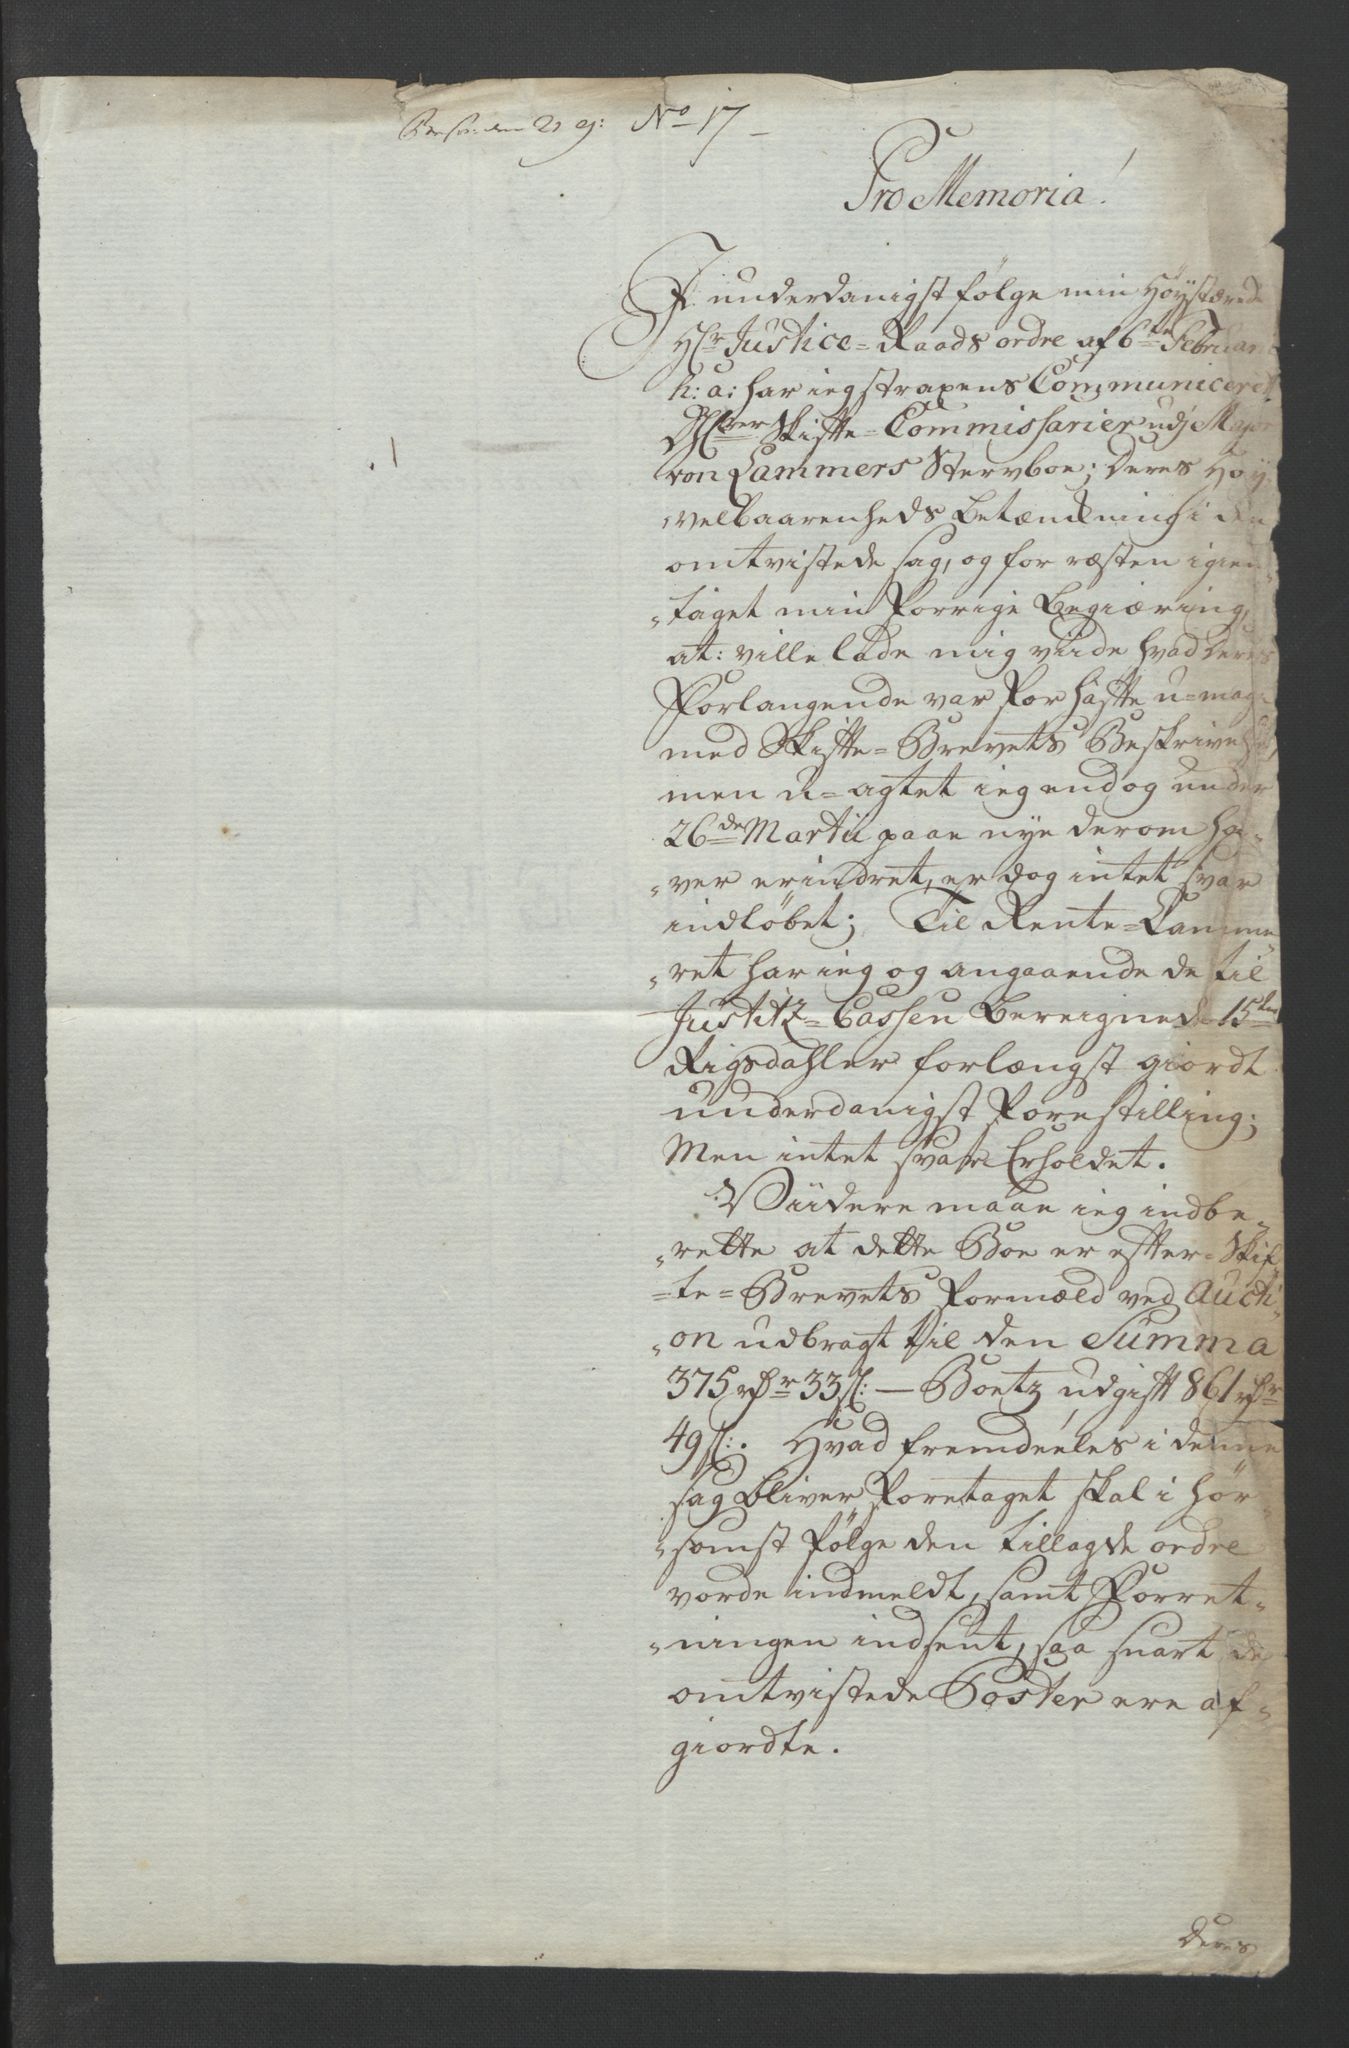 No 17
Pro Memoria!
I underdanigst følge min Høystærede
Hr Justice=Raads ordre af 6te Februarii
h: a: har ieg straxens Communiceret
Hrer Skifte=Commissarier udj Major
von Lammers Stervboe; Deres Høy
velbaarenheds Betænkning i den
omtvistede sag, og for resten igien-
-taget min Forrige Begiæring,
at: ville lade mig viide, hvad Deres
Forlangende var For hafte u=mage
med Skifte=Brevets Beskrivelse,
men u=agtet ieg endog under
26de Martii paa nye derom ha-
-ver erindret, er dog intet svar
indløbet; Til Rente=Camme
-ret har ieg og angaaende de til
Justitz=Cassen Bereignede 15ten
Rigsdahler forlængst giordt
underdanigst Forestilling;
Men intet svar Erholdet.
Viidere maae ieg indbe-
-rette at dette Boe er efter Skif
=te=Brevets Formæld ved Aucti-
-on udbragt til den Summa
375 rdr 33 s: — Boetz udgift 861 rdr
49 s:. Hvad fremdeeles i denne
sag bliver Foretaget skal i hør-
-somst Følge den tillagde ordre
vorde indmeldt, samt Forret-
-ningen indsent, saa snart de
omtvistede Poster ere af-
giordte.
Deres